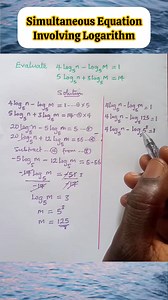 Simultaneous Equation
Involving Logarithm
Evaluate 4log₅n - log₅m = 1
5log₅n + 3log₅m = 14
Solution
4log₅n - log₅m = 1 --- ① × 5
5log₅n + 3log₅m = 14 -- ② × 4
20log₅n - 5log₅m = 5 -- ③
20log₅n + 12log₅m = 56 -- ④
Subtract ④ from ③
-5log₅m - 12log₅m = 5-56
log₅m = 3
m = 5³
m = 125
4log₅n - log₅m = 1
4log₅n - log₅125 = 1
4log₅n - log₅5³ = 1